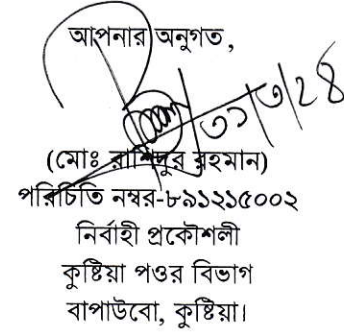 আপনার অনুগত,
৩১/৩/২৪
(মোঃ রাশিদুর রহমান)
পরিচিতি নম্বর-৮৯১২১৫০০২
নির্বাহী প্রকৌশলী
কুষ্টিয়া পওর বিভাগ
বাপাউবো, কুষ্টিয়া।